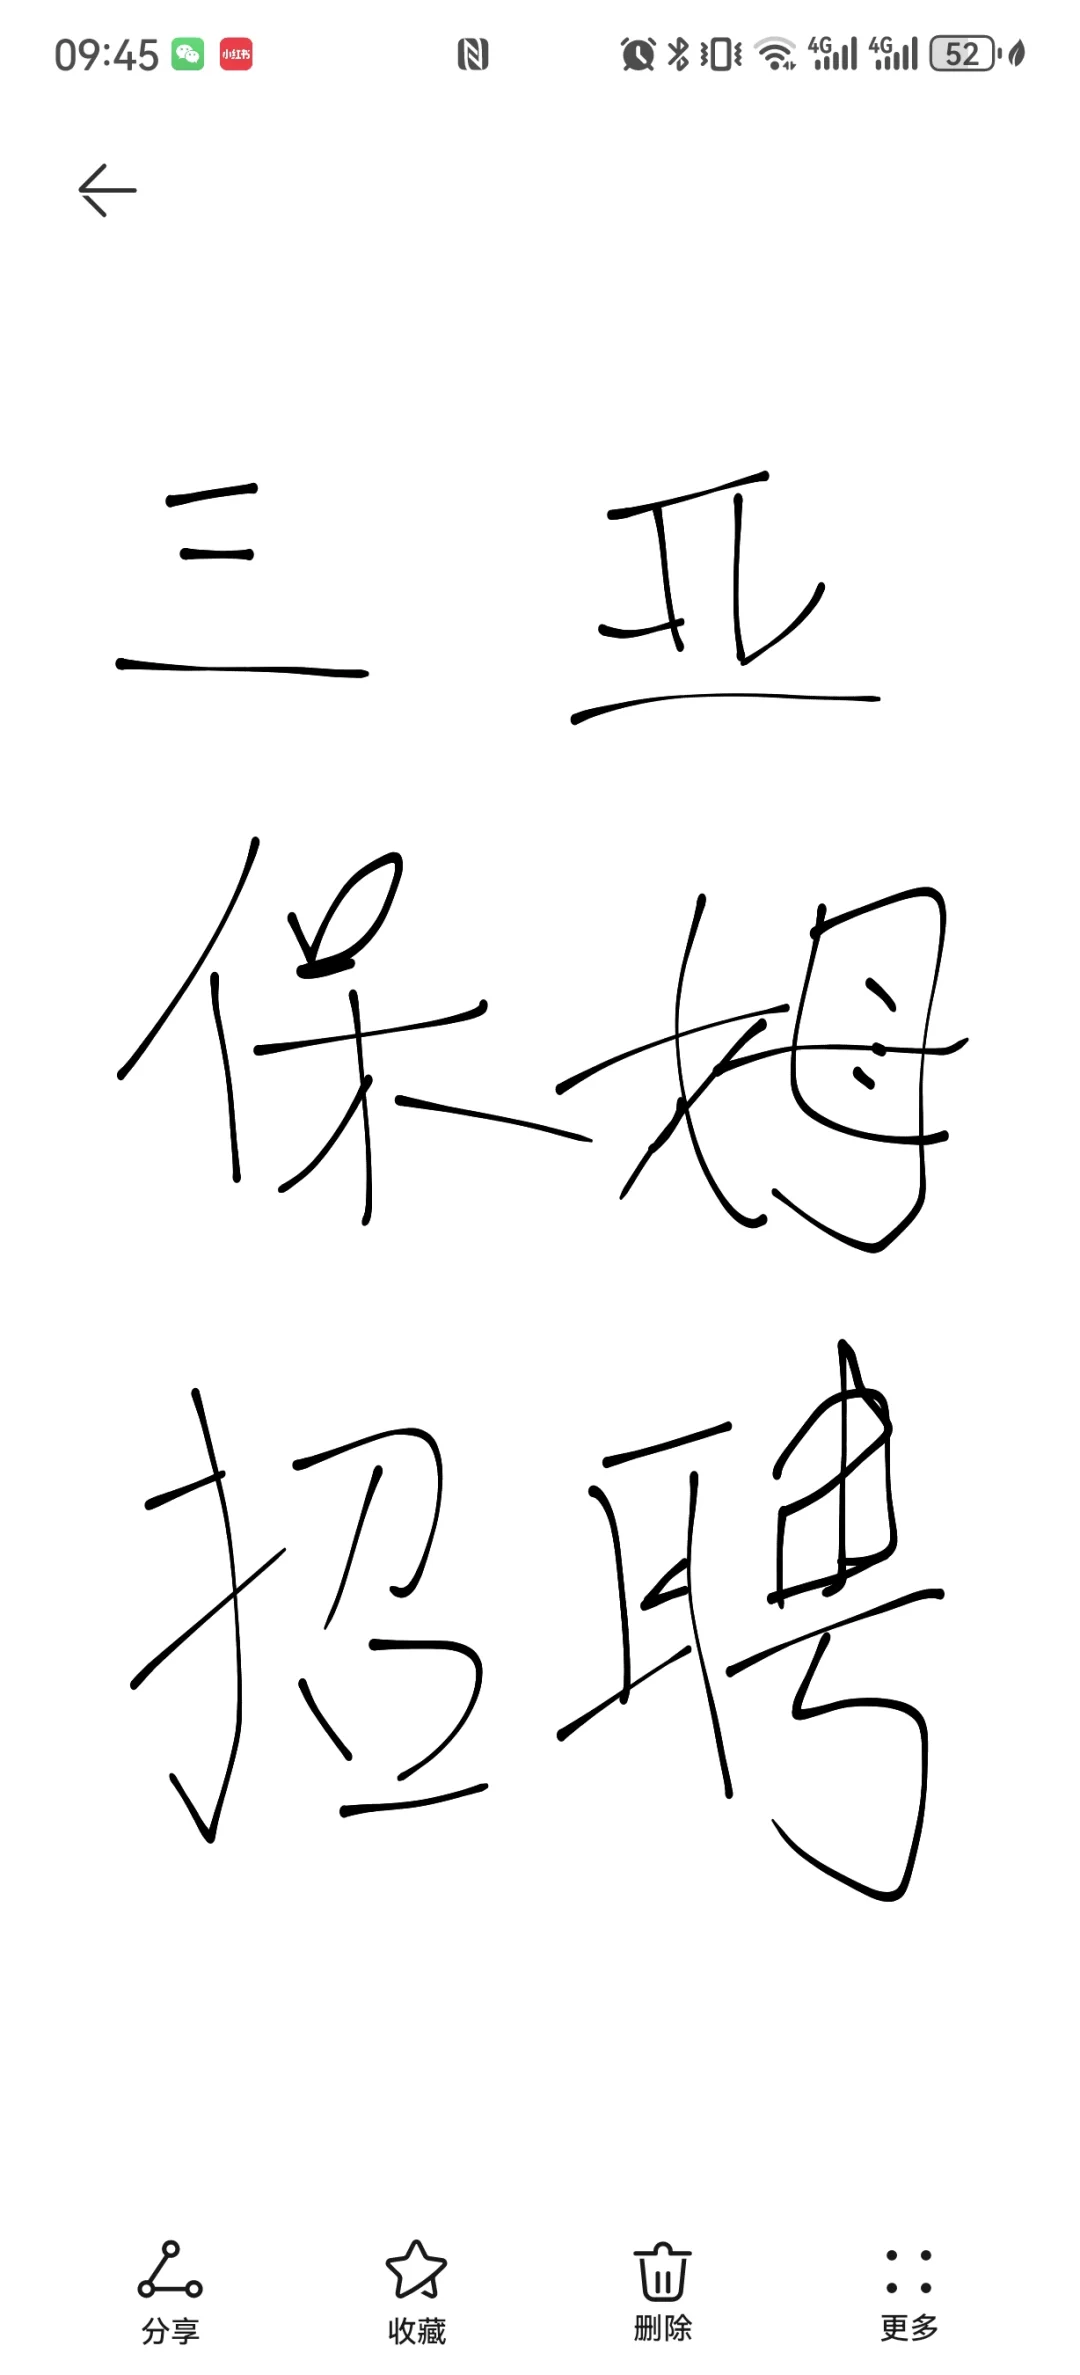 09:45 小红书 4G 4G 52
三亚
保姆
招聘
分享 收藏 删除 更多